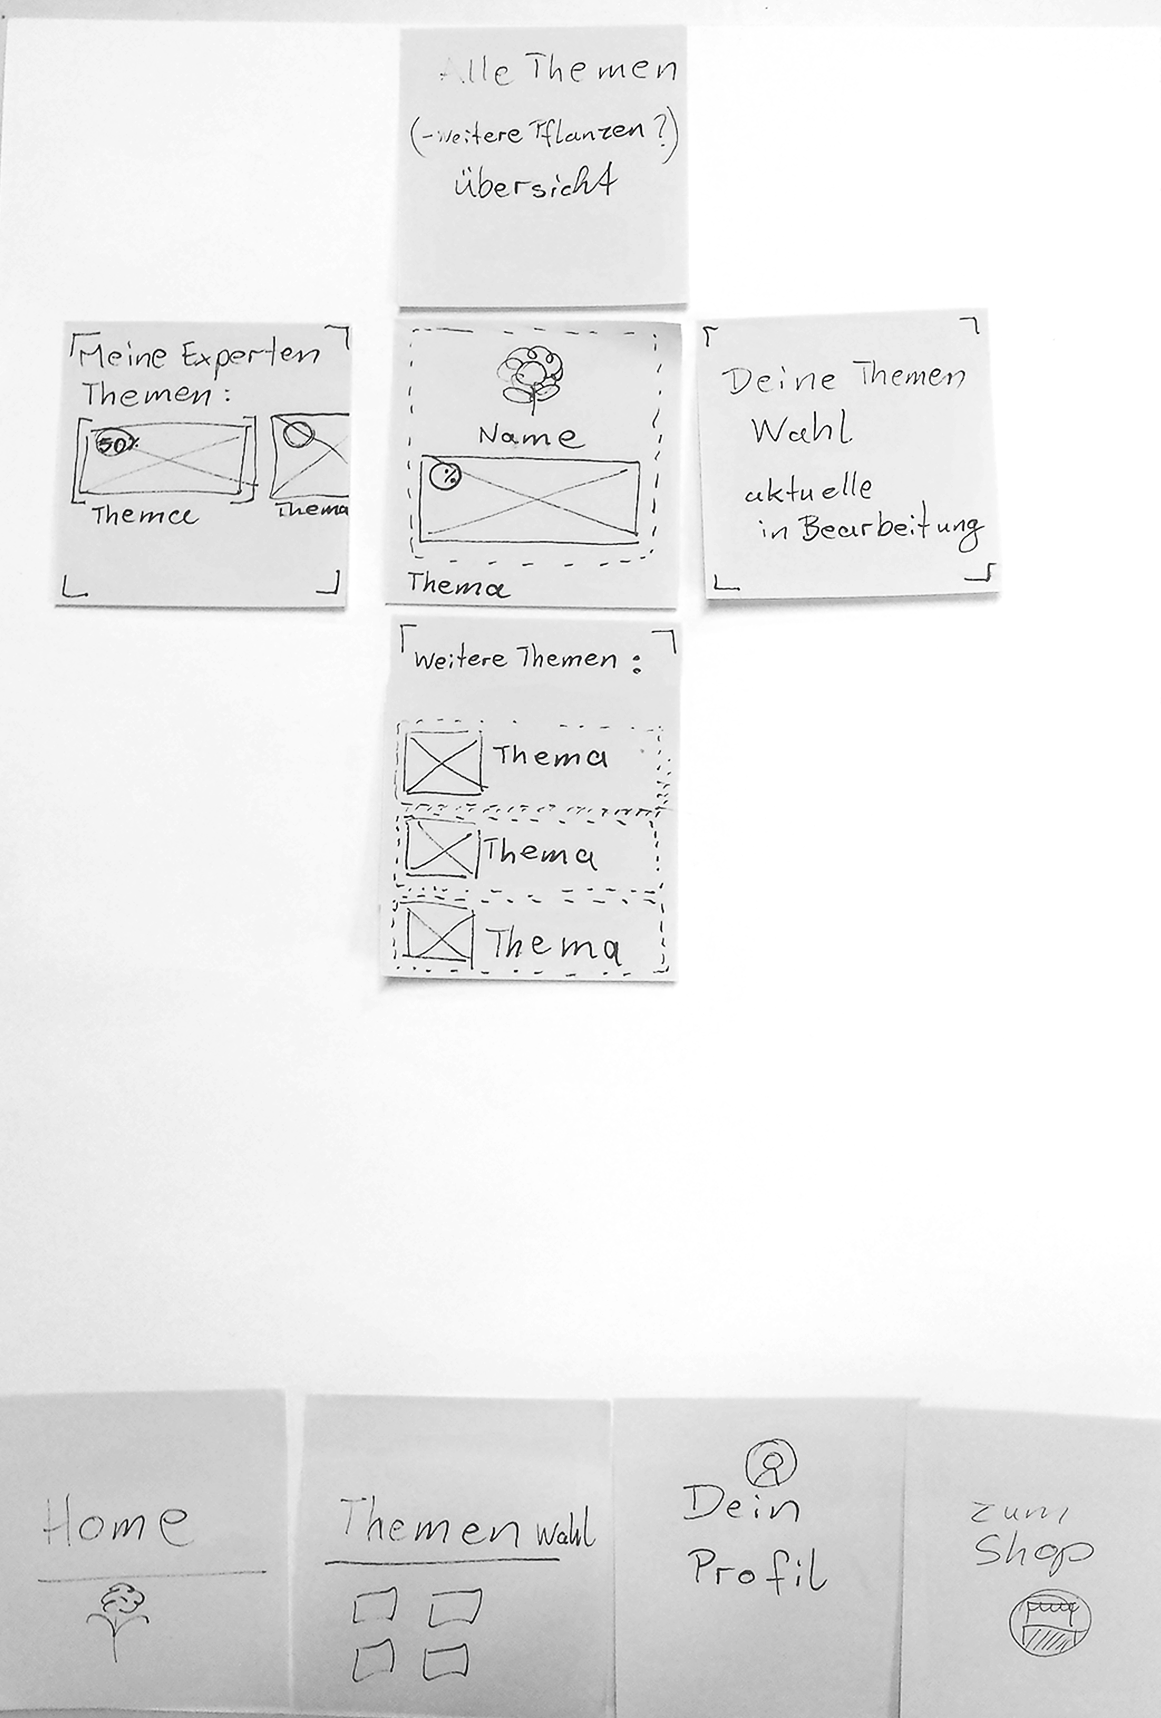 Alle Themen
(-weitere Pflanzen?)
übersicht
Meine Experten
Themen:
50%
Thema
Thema
Name
%
Thema
Deine Themen
Wahl
aktuelle
in Bearbeitung
Weitere Themen:
Thema
Thema
Thema
Home
Themenwahl
Dein
Profil
zum
Shop